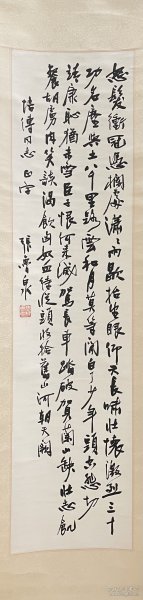 怒髮衝冠憑欄處瀟瀟雨歇抬望眼仰天長嘯壯懷激烈三十
功名塵與土八千里路雲和月莫等閒白了少年頭空悲切
靖康恥猶未雪臣子恨何時滅駕長車踏破賀蘭山缺壯志飢
餐胡虜肉笑談渴飲匈奴血待從頭收拾舊山河朝天闕
同志正字